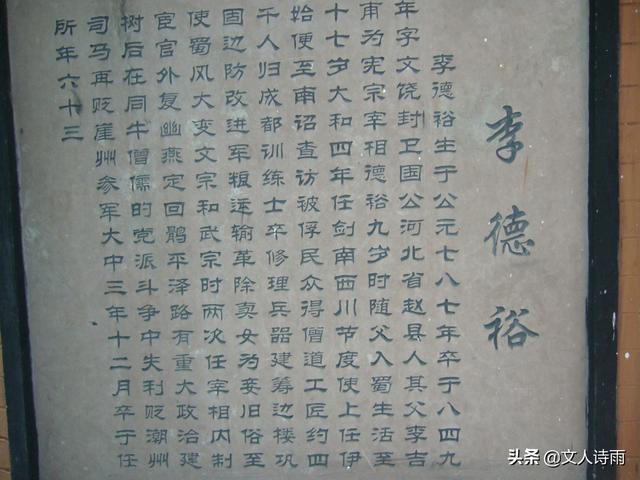 李德裕
李德裕生于公元七八七年卒于八四九
年字文饶封卫国公河北省赵县人其父李吉
甫为宪宗宰相德裕九岁时随父入蜀生活至
十七岁大和四年任剑南西川节度使上任伊
始便至南诏查访被俘民众得僧道工匠约四
千人归成都训练士卒修理兵器建筹边楼巩
固边防改进军粮运输革除卖女为妾旧俗至
使蜀风大变文宗和武宗时两次任宰相内制
宦官外复幽燕定回鹘平泽路有重大政治建
树后在同牛僧儒的党派斗争中失利贬潮州
司马再贬崖州参军大中三年十二月卒于任
所年六十三
头条 @文人诗雨